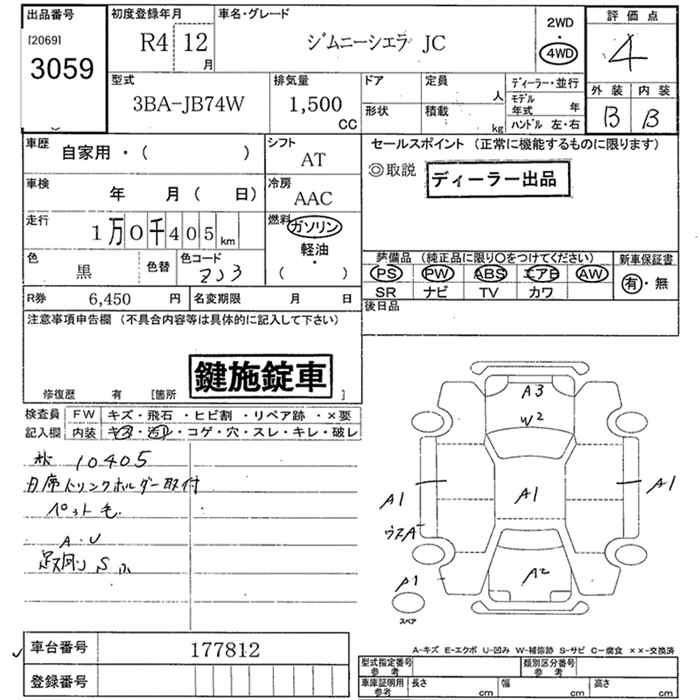 出品番号 初度登録年月 車名・グレード 2WD 評価点
[2069] 3059 R4 12月 ジムニーシエラ JC 4WD 4
型式 排気量 ドア 定員 人 ディーラー・並行 外装 内装
3BA-JB74W 1,500 CC 形状 積載 kg モデル年式 年 ハンドル 左・右 B B
車歴 自家用・( ) シフト AT セールスポイント(正常に機能するものに限ります)
◎取説 ディーラー出品
車検 年 月( 日) 冷房 AAC
走行 1万0千405km 燃料 ガソリン
軽油・
( )
色 黒 色替 色コード ZJ3
装備品(純正品に限り〇をつけてください) 新車保証書
PS PW ABS エアB AW 有・無
SR ナビ TV カワ
R券 6,450 円 名変期限 月 日 後日品
注意事項申告欄(不具合内容等は具体的に記入して下さい)
鍵施錠車
修復歴 有 [箇所 ]
検査員 FW キズ・飛石・ヒビ割・リペア跡・×要
記入欄 内装 キズ・汚れ・コゲ・穴・スレ・キレ・破レ
10405
ドリンクホルダー取付
ペット毛
A・U
S小
A3
W2
A1 A1 A1
ウスA
A2
P1
スペア
A-キズ E-エクボ U-凹み W-補修跡 S-サビ C-腐食 ××-交換済
車台番号 177812
登録番号
型式指定番号 参考 類別区分番号 参考
車庫証明用 参考 長さ cm 幅 cm 高さ cm